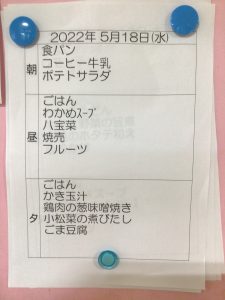 2022年 5月18日(水)
朝
食パン
コーヒー牛乳
ポテトサラダ
昼
ごはん
わかめｽｰﾌﾟ
八宝菜
焼売
フルーツ
夕
ごはん
かき玉汁
鶏肉の葱味噌焼き
小松菜の煮びたし
ごま豆腐